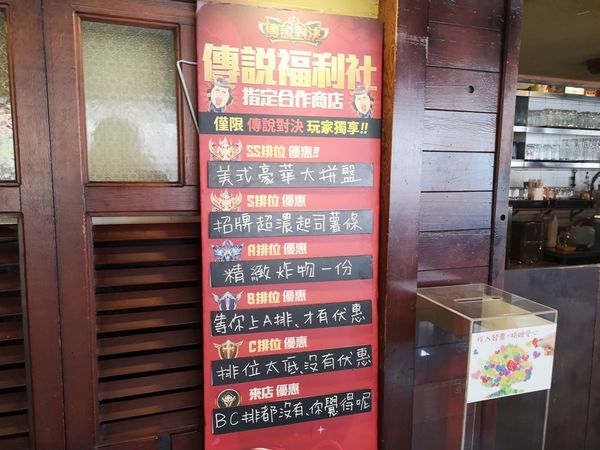 傳說對決
傳說福利社
指定合作商店
僅限 傳說對決 玩家獨享!!
SS排位 優惠!!
美式豪華大拼盤
S排位 優惠
招牌超濃起司薯條
A排位 優惠
精緻炸物一份
B排位 優惠
等你上A排、才有优惠
C排位 優惠
排位太底、沒有优惠
來店 優惠
BC排都沒有、你覺得呢
投入發票·捐贈愛心